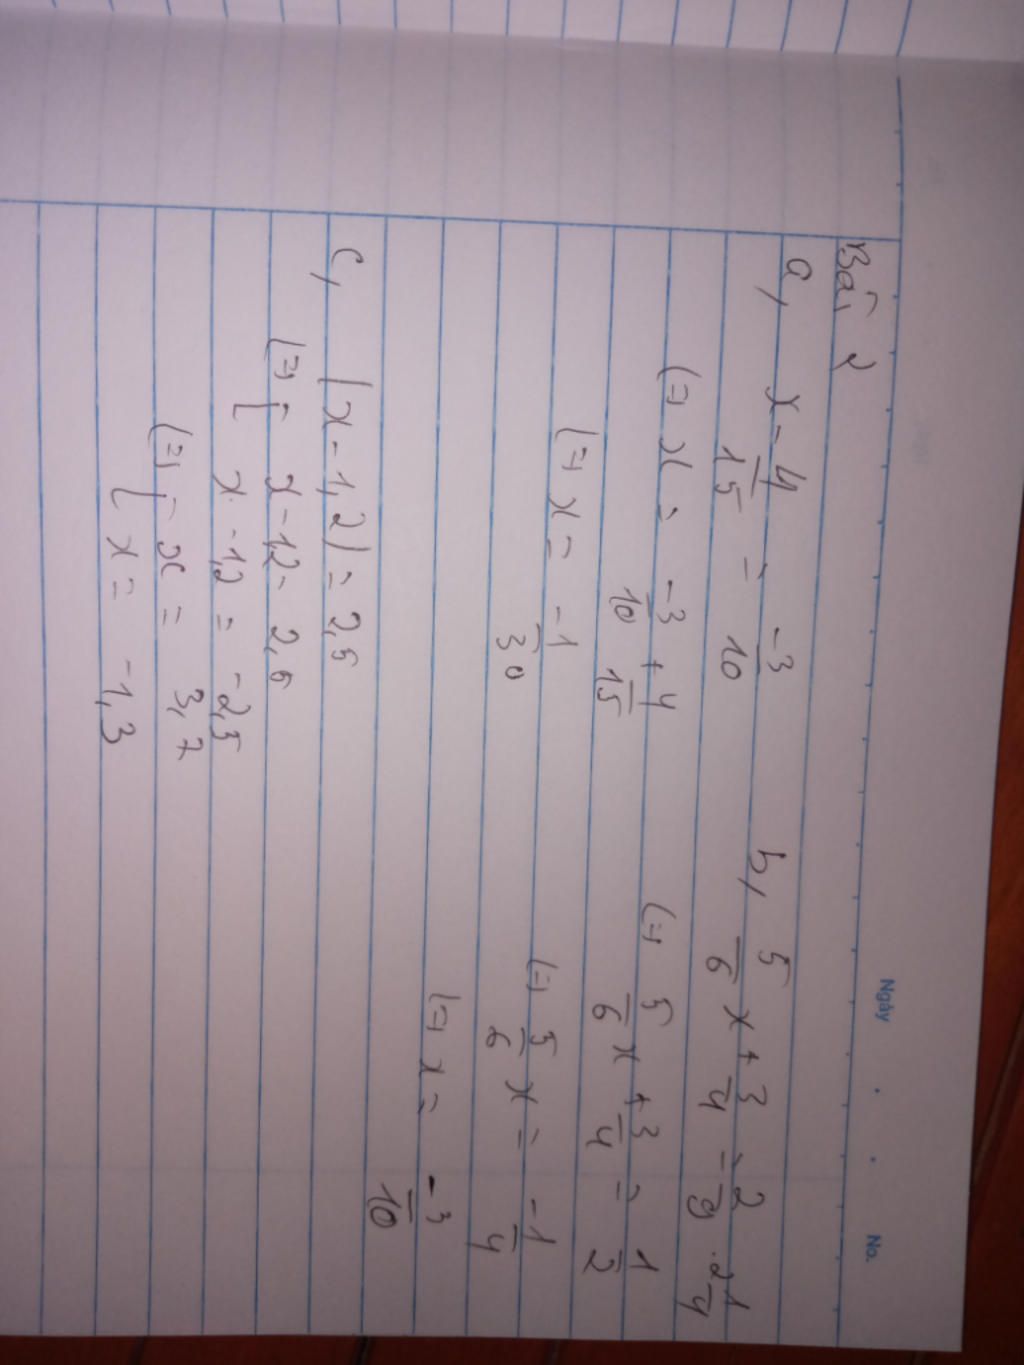 Ngày . . No.
Bài 2
a, x - 4/15 = -3/10
(=) x = -3/10 + 4/15
(=) x = -1/30
b, 5/6 x + 3/4 = 2/9 . 2 1/4
(=) 5/6 x + 3/4 = 1/2
(=) 5/6 x = -1/4
(=) x = -3/10
c, |x - 1,2| = 2,5
(=) [ x - 1,2 = 2,5
x - 1,2 = -2,5
(=) [ x = 3,7
x = -1,3